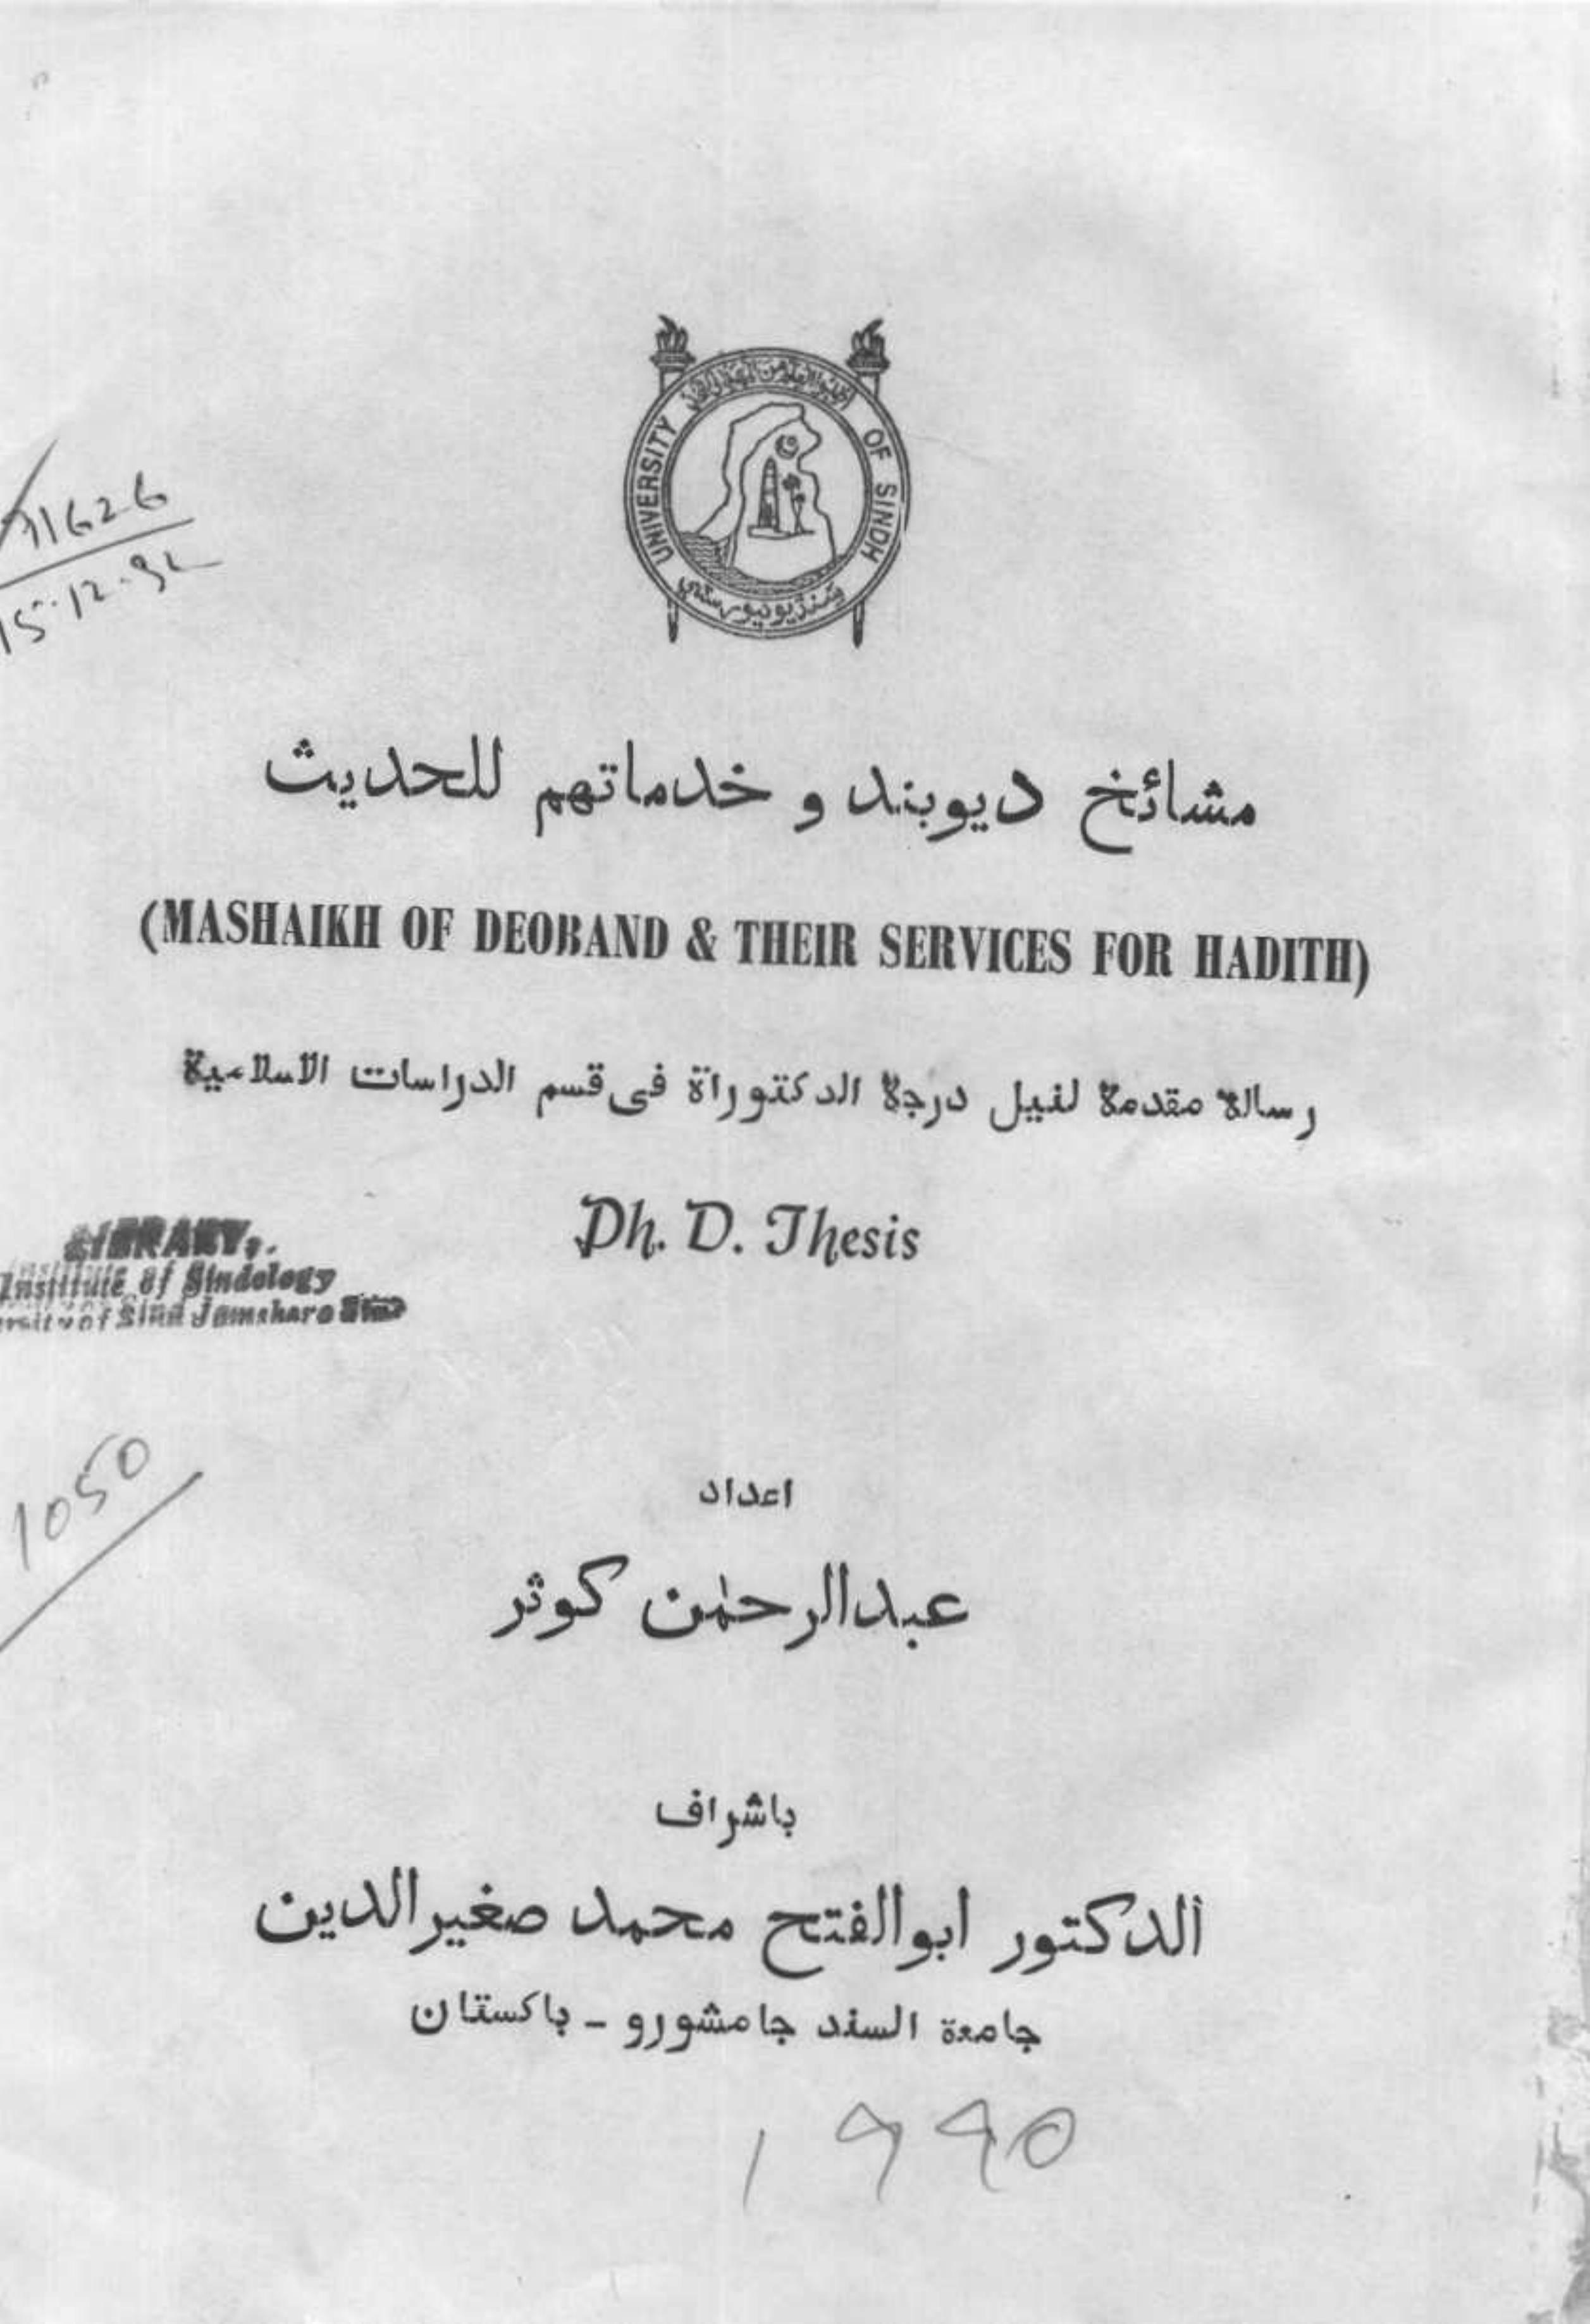 UNIVERSITY OF SINDH
مشائخ ديوبند و خدماتهم للحديث
(MASHAIKH OF DEOBAND & THEIR SERVICES FOR HADITH)
رسالة مقدمة لنيل درجة الدكتوراة فى قسم الدراسات الاسلامية
Ph. D. Thesis
11626
15-12-92
LIBRARY,
Institute of Sindology
of Sind Jamshoro
1050
اعداد
عبدالرحمٰن كوثر
باشراف
الدكتور ابوالفتح محمد صغيرالدين
جامعة السند جامشورو - باكستان
1990